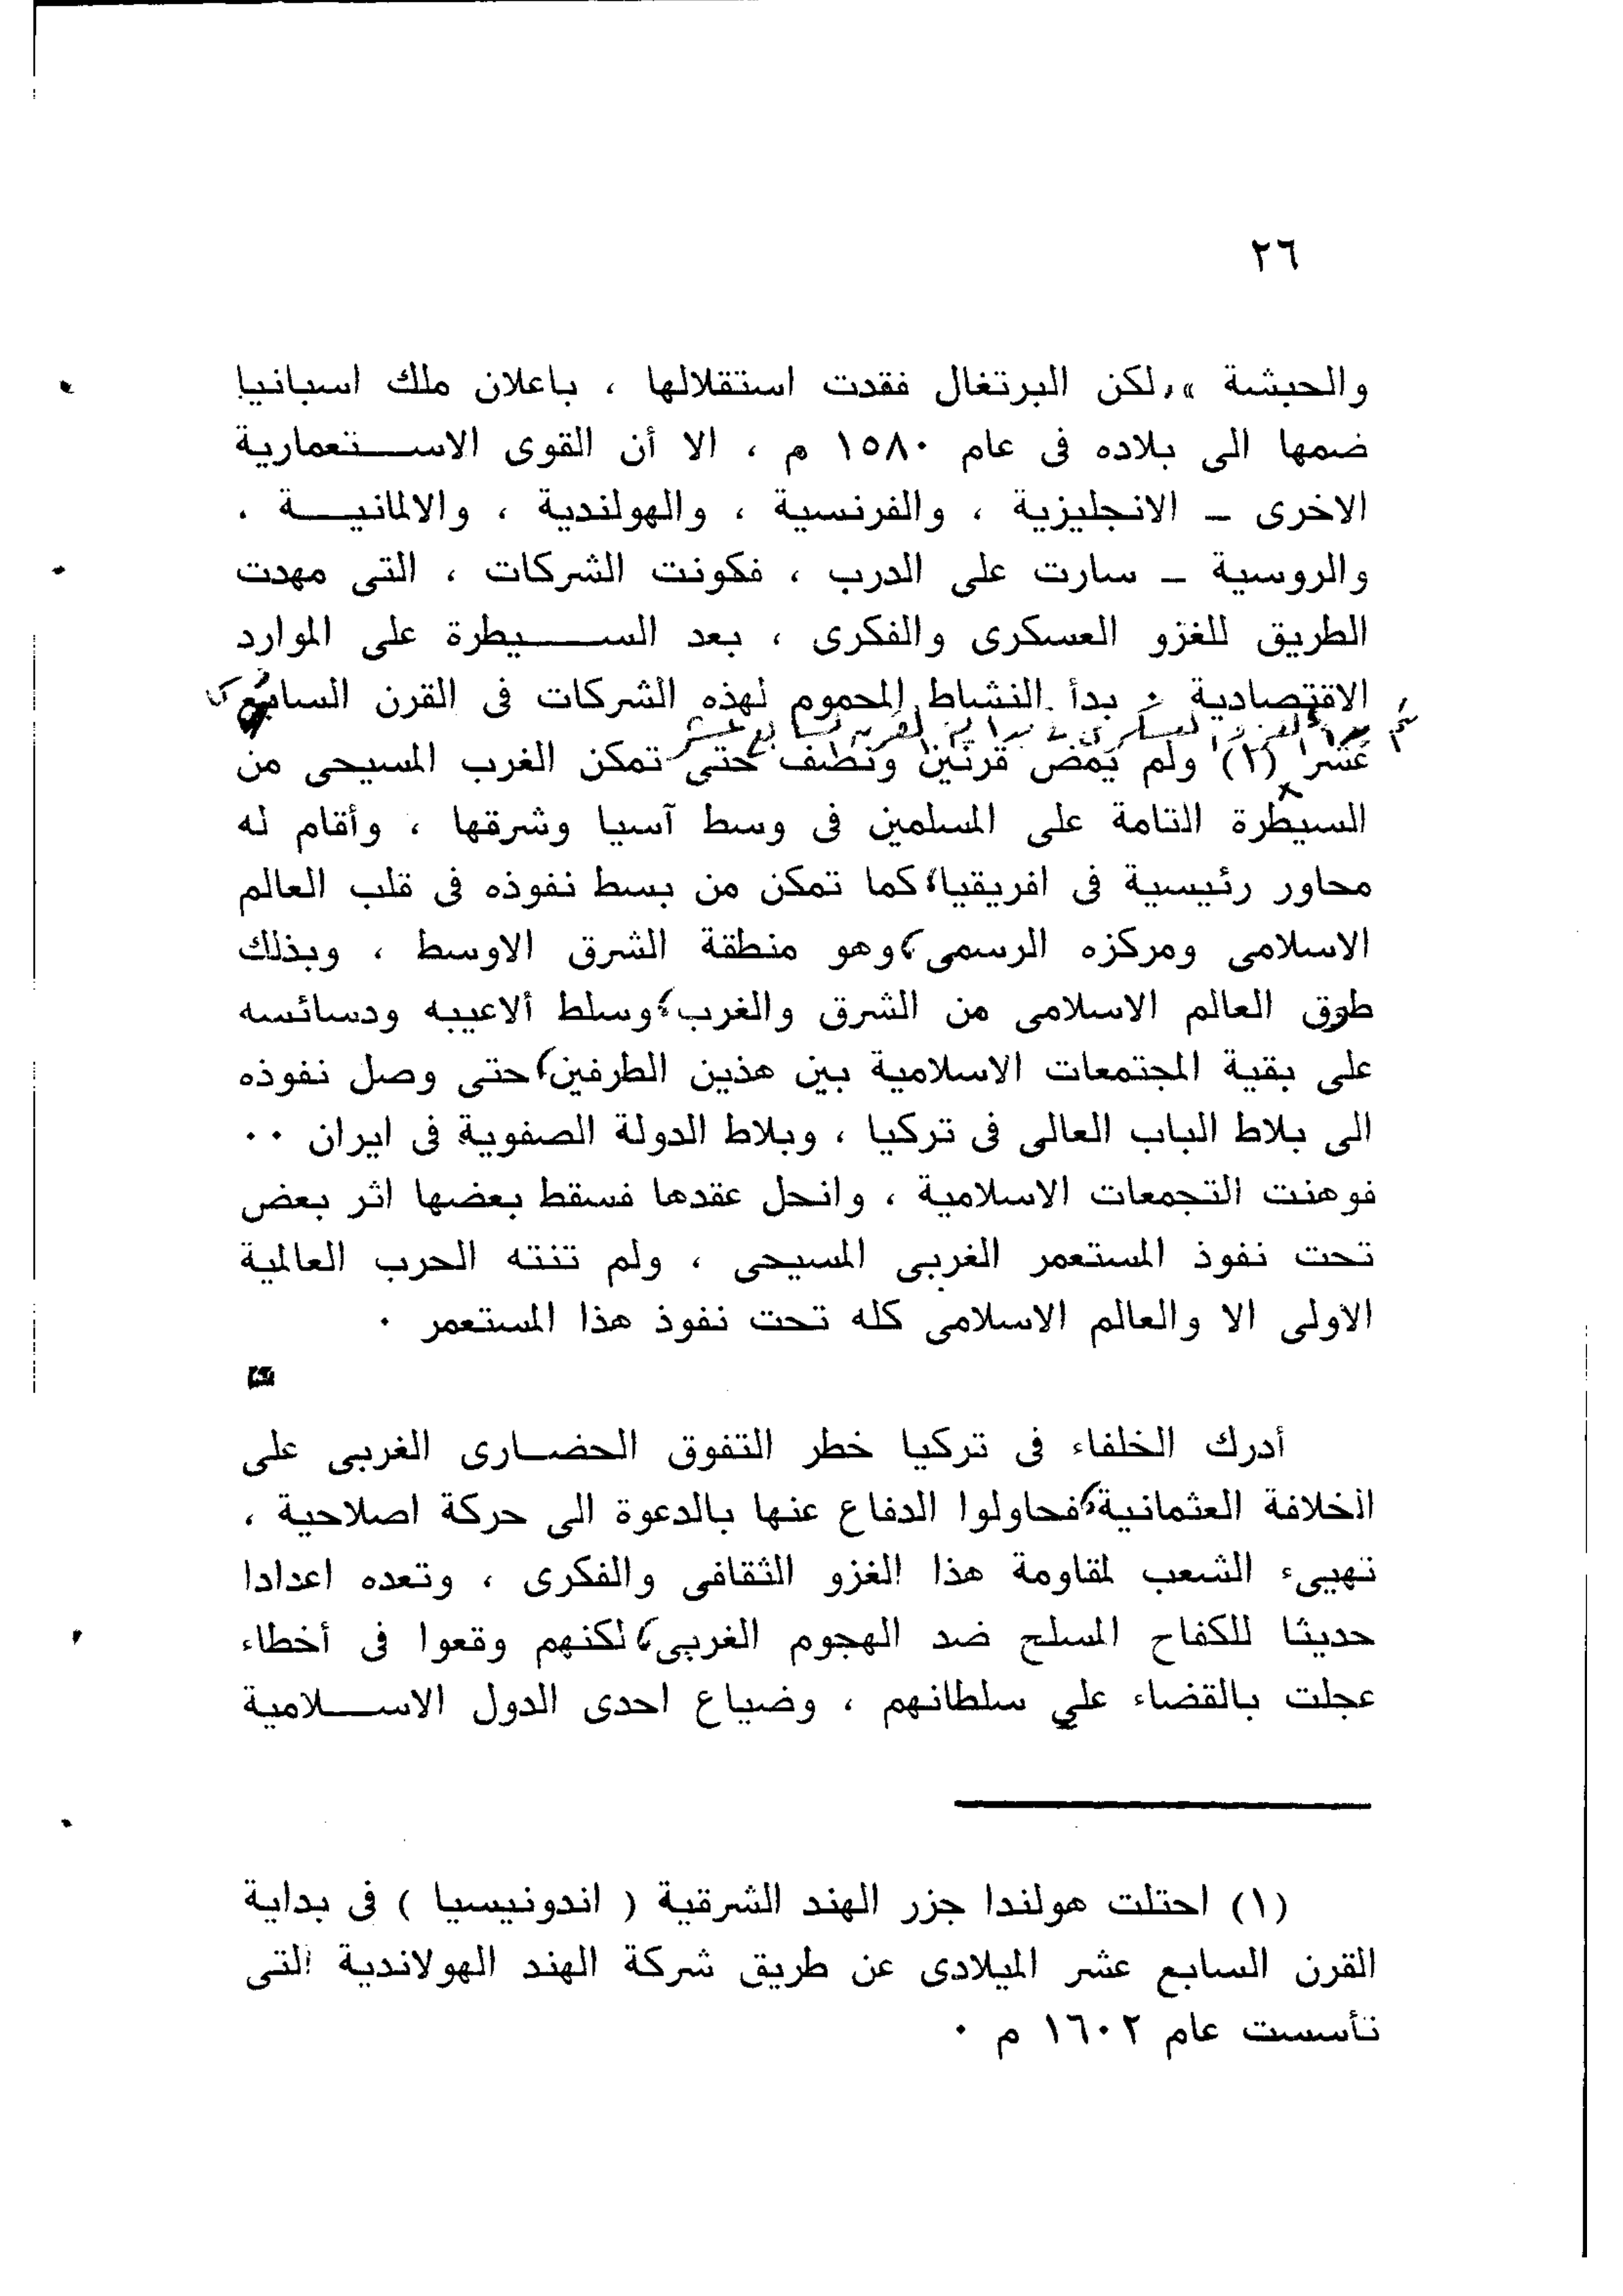 ٢٦
والحبشة » ولكن البرتغال فقدت استقلالها ، باعلان ملك اسبانيا
ضمها الى بلاده فى عام ١٥٨٠ م ، الا أن القوى الاستعمارية
الاخرى ــ الانجليزية ، والفرنسية ، والهولندية ، والالمانية .
والروسية ــ سارت على الدرب ، فكونت الشركات ، التى مهدت
الطريق للغزو العسكرى والفكرى ، بعد السيطرة على الموارد
الاقتصادية . بدأ النشاط المحموم لهذه الشركات فى القرن السابع
عشر (١) ولم يمض قرنين ونصف حتى تمكن الغرب المسيحى من
السيطرة التامة على المسلمين فى وسط آسيا وشرقها ، وأقام له
محاور رئيسية فى افريقيا، كما تمكن من بسط نفوذه فى قلب العالم
الاسلامى ومركزه الرسمى، وهو منطقة الشرق الاوسط ، وبذلك
طوق العالم الاسلامى من الشرق والغرب، وسلط ألاعيبه ودسائسه
على بقية المجتمعات الاسلامية بين هذين الطرفين، حتى وصل نفوذه
الى بلاط الباب العالى فى تركيا ، وبلاط الدولة الصفوية فى ايران ..
فوهنت التجمعات الاسلامية ، وانحل عقدها فسقط بعضها اثر بعض
تحت نفوذ المستعمر الغربى المسيحى ، ولم تنته الحرب العالمية
الاولى الا والعالم الاسلامى كله تحت نفوذ هذا المستعمر .
أدرك الخلفاء فى تركيا خطر التفوق الحضارى الغربى على
الخلافة العثمانية، فحاولوا الدفاع عنها بالدعوة الى حركة اصلاحية ،
تهيىء الشعب لمقاومة هذا الغزو الثقافى والفكرى ، وتعده اعدادا
حديثا للكفاح المسلح ضد الهجوم الغربى، لكنهم وقعوا فى أخطاء
عجلت بالقضاء علي سلطانهم ، وضياع احدى الدول الاسلامية
(١) احتلت هولندا جزر الهند الشرقية ( اندونيسيا ) فى بداية
القرن السابع عشر الميلادى عن طريق شركة الهند الهولاندية التى
تأسست عام ١٦٠٢ م .